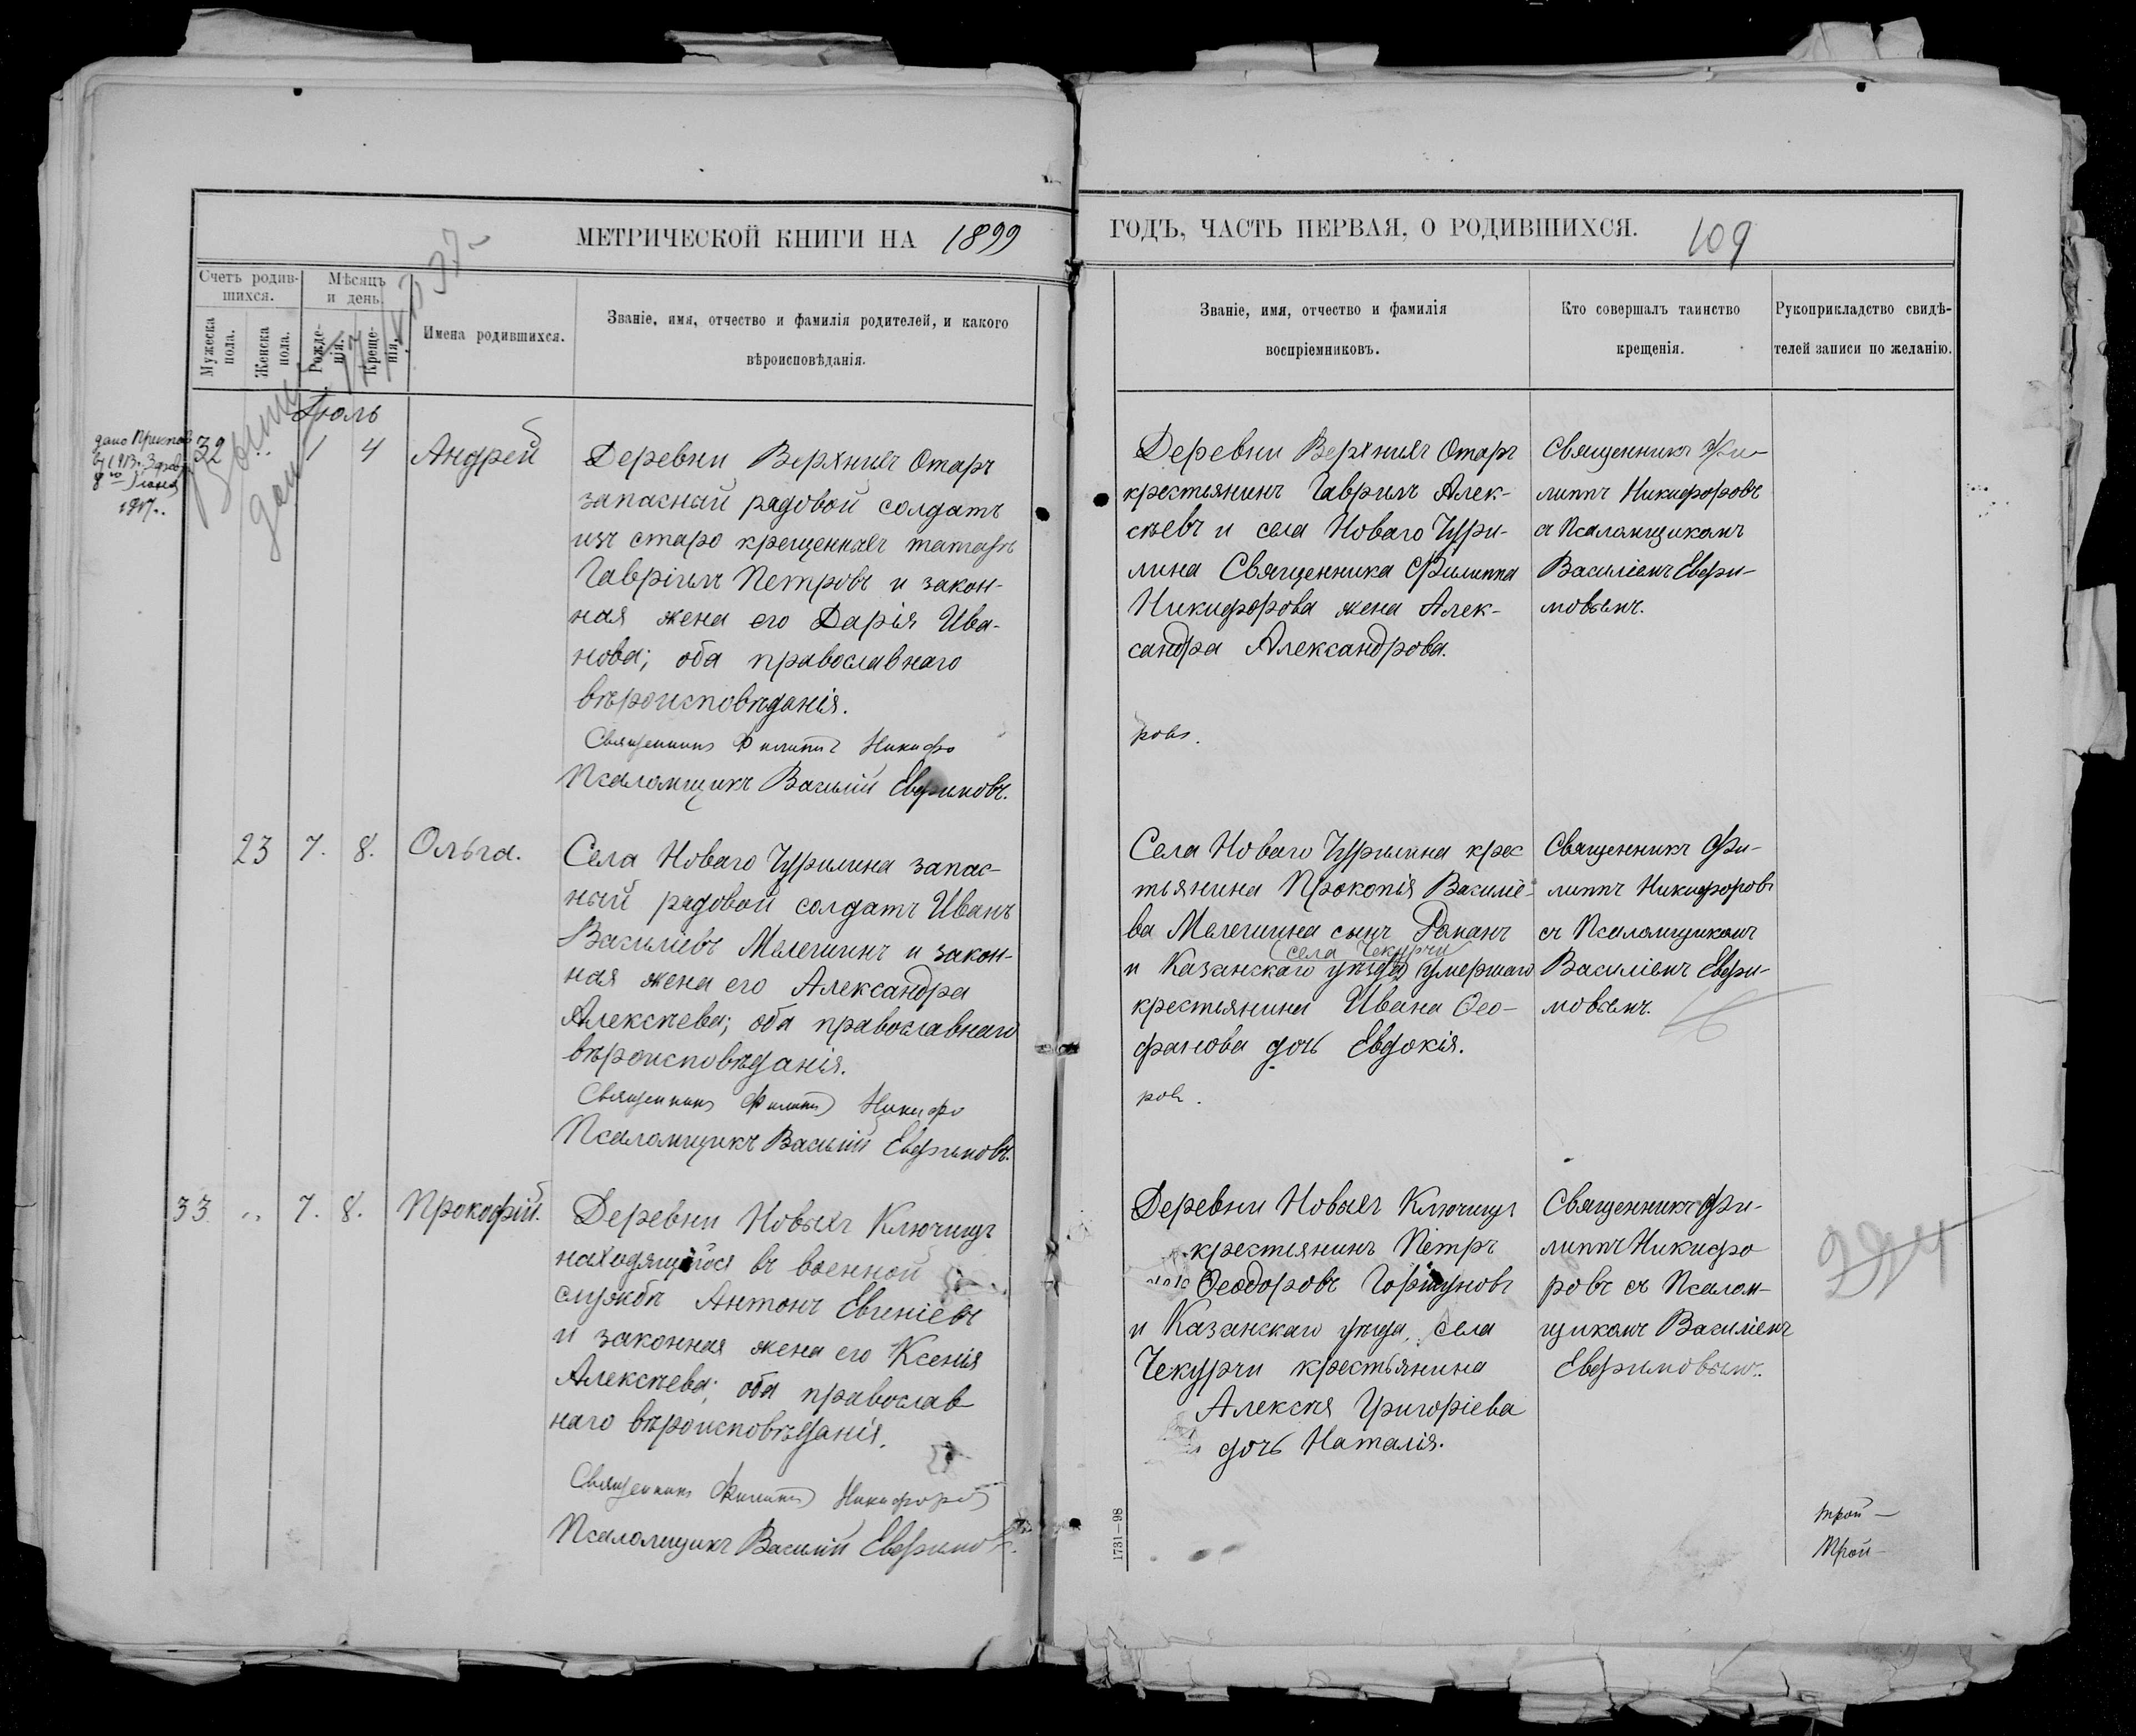 МЕТРИЧЕСКОЙ КНИГИ НА 1899
ГОДЪ, ЧАСТЬ ПЕРВАЯ, О РОДИВШИХСЯ. 109
Счетъ родив-
шихся.
Мужеска
пола.
Женска
пола.
Мѣсяцъ
и день.
Рожде-
нія.
Креще-
нія.
Имена родившихся.
Званіе, имя, отчество и фамилія родителей, и какого
вѣроисповѣданія.
Званіе, имя, отчество и фамилія
воспріемниковъ.
Кто совершалъ таинство
крещенія.
Рукоприкладство свидѣ-
телей записи по желанію.
Іюль
32 " 1 4 Андрей
Деревни Верхнихъ Отаръ
запасный рядовой солдатъ
изъ старо крещенныхъ татаръ
Гавріилъ Петровъ и закон-
ная жена его Дарія Ива-
нова; оба православнаго
вѣроисповѣданія.
Священникъ Филиппъ Никифо
Псаломщикъ Василій Евфимовъ.
Деревни Верхнихъ Отаръ
крестьянинъ Гаврилъ Алек-
сѣевъ и села Новаго Чури-
лина Священника Филиппа
Никифорова жена Алек-
сандра Александрова.
ровъ.
Священникъ Фи-
липпъ Никифоровъ
съ Псаломщикомъ
Василіемъ Евфи-
мовымъ.
23 7. 8. Ольга.
Села Новаго Чурилина запас-
ный рядовой солдатъ Иванъ
Васильевъ Малегинъ и закон-
ная жена его Александра
Алексѣева; оба православнаго
вѣроисповѣданія.
Священникъ Филиппъ Никифо
Псаломщикъ Василій Евфимовъ.
Села Новаго Чурилина крес
тьянина Прокопія Василіе-
ва Малегина сынъ Романъ
села Чекурчи
и Казанскаго уѣзда умершаго
крестьянина Ивана Ѳео-
фанова дочь Евдокія.
ровъ.
Священникъ Фи-
липпъ Никифоровъ
съ Псаломщикомъ
Василіемъ Евфи-
мовымъ.
33 " 7. 8. Прокофій.
Деревни Новыхъ Ключищъ
находящійся въ военной
службѣ Антонъ Евгеніевъ
и законная жена его Ксенія
Алексѣева; оба православ
наго вѣроисповѣданія.
Священникъ Филиппъ Никифоровъ
Псаломщикъ Василій Евфимовъ.
Деревни Новыхъ Ключищъ
крестьянинъ Петръ
Ѳеодоровъ Горшуновъ
и Казанскаго уѣзда, села
Чекурчи крестьянина
Алексѣя Григоріева
дочь Наталія.
Священникъ Фи-
липпъ Никифо
ровъ съ Псалом-
щикомъ Василіемъ
Евфимовымъ.
трои-
Трои-
1731—98